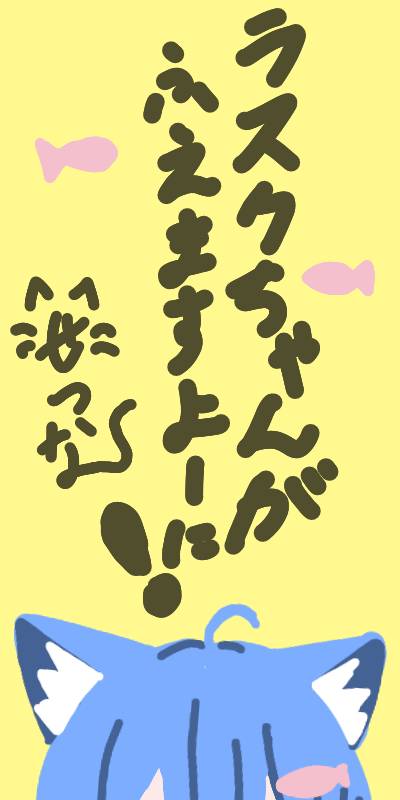 ラスクちゃんが
ふえますよーに!